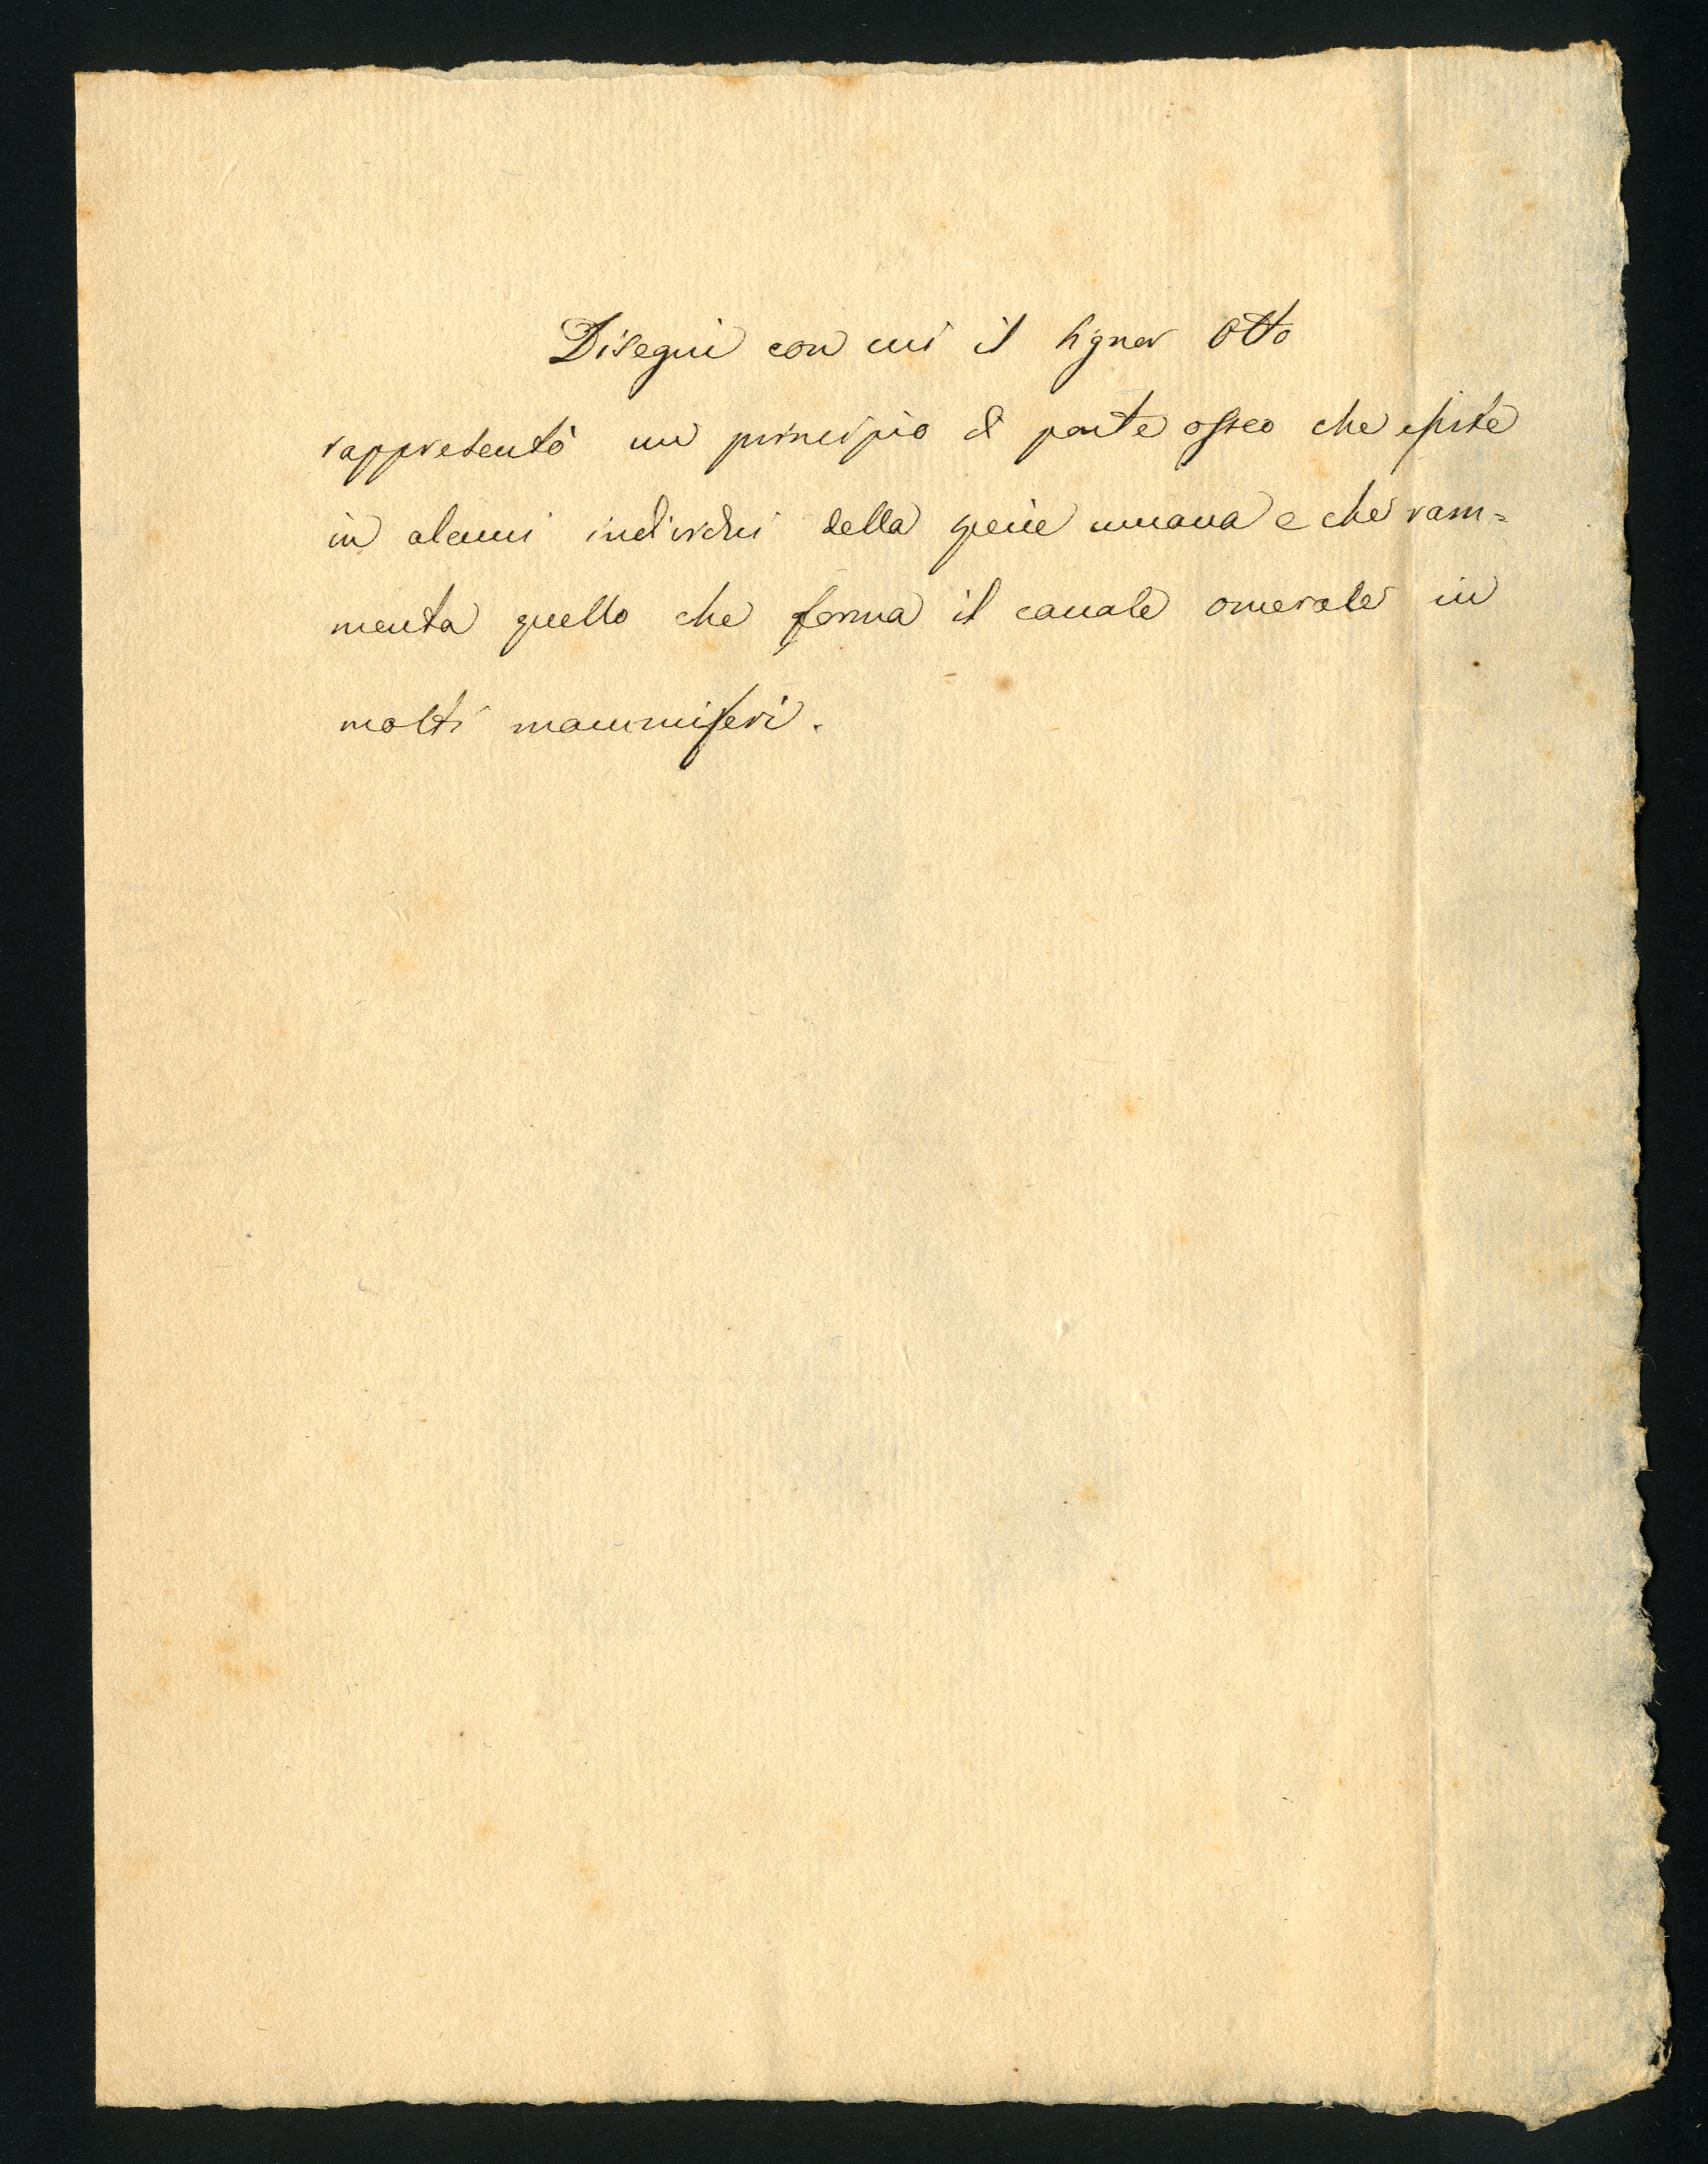 Disegni con cui il Signor Otto
rappresentò un principio di ponte osseo che esiste
in alcuni individui della specie umana e che ram=
menta quello che forma il canale omerale in
molti mammiferi.